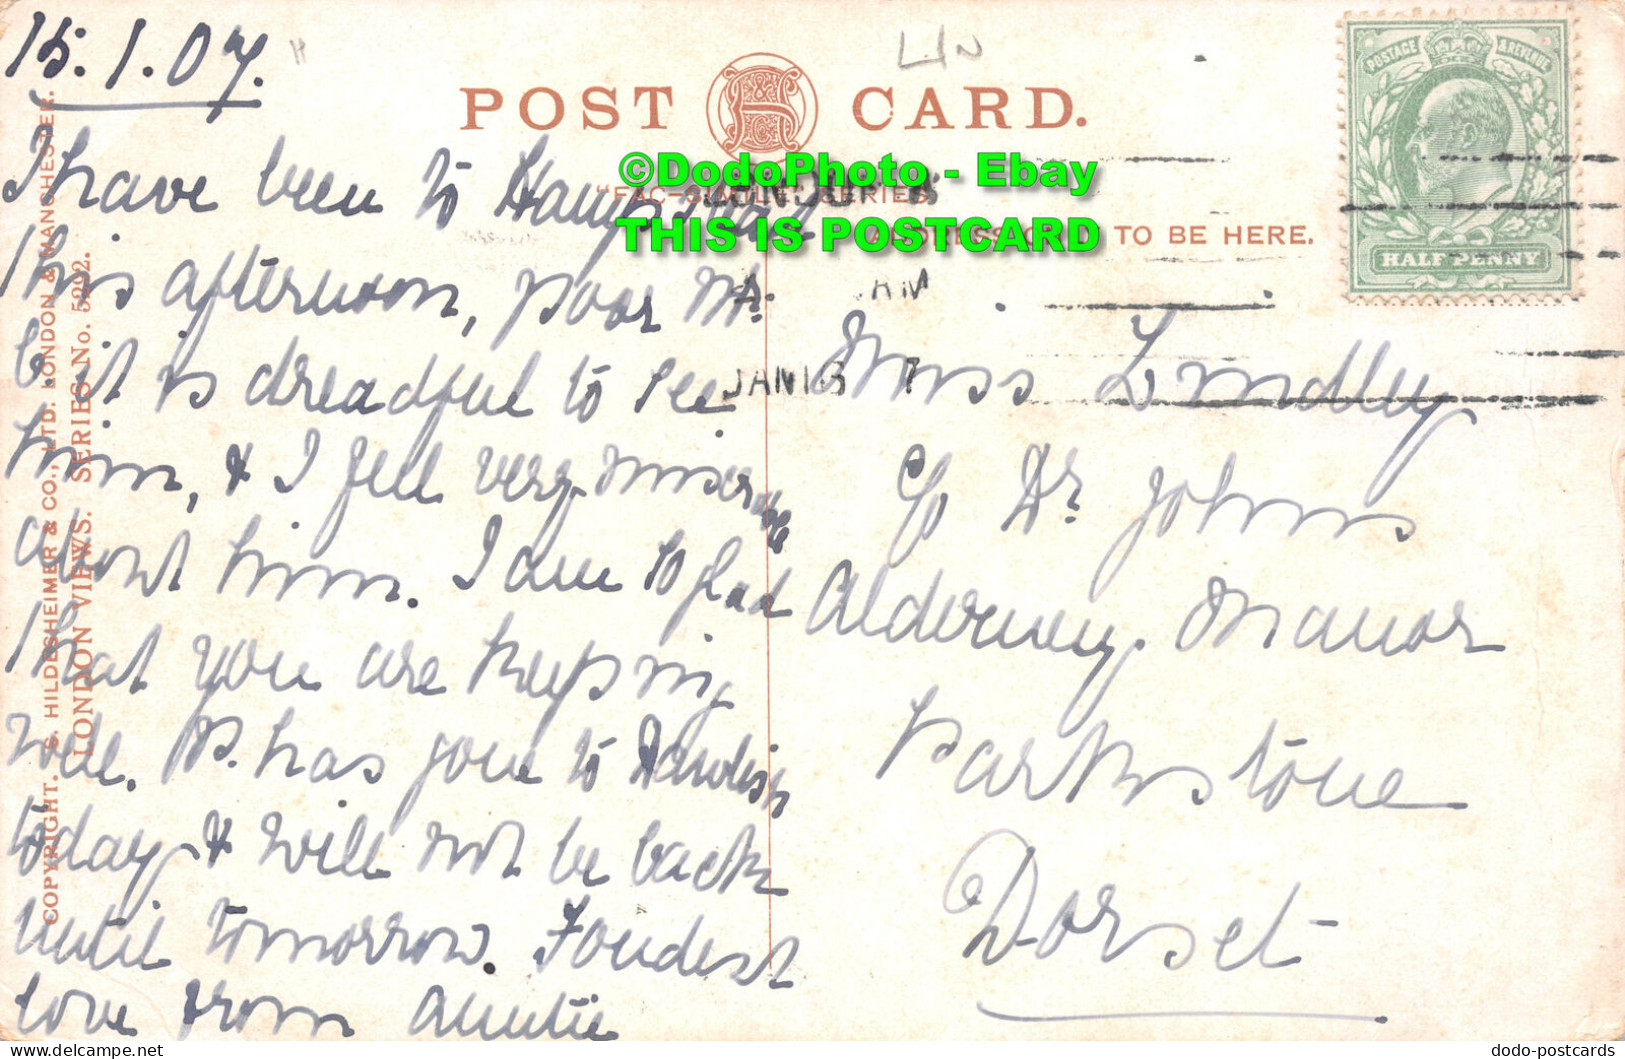 15.1.07.
LIN
POST CARD.
"FAC-SIMILE" SERIES.
ADDRESS ONLY TO BE HERE.
POSTAGE & REVENUE
HALF PENNY
©DodoPhoto - Ebay
THIS IS POSTCARD
AM
JAN 16 7
I have been to Hampstead
this afternoon, poor Mr.
B it is dreadful to see
him, & I feel very miserable
about him. I am so glad
that you are keeping
well. P. has gone to Dawlish
today & will not be back
until tomorrow. Fondest
love from Auntie
Miss Lindley
c/o Dr Johns
Alderney Manor
Parkstone
Dorset
COPYRIGHT. S. HILDESHEIMER & CO., LTD. LONDON & MANCHESTER.
LONDON VIEWS. SERIES No. 5292.
dodo-postcards